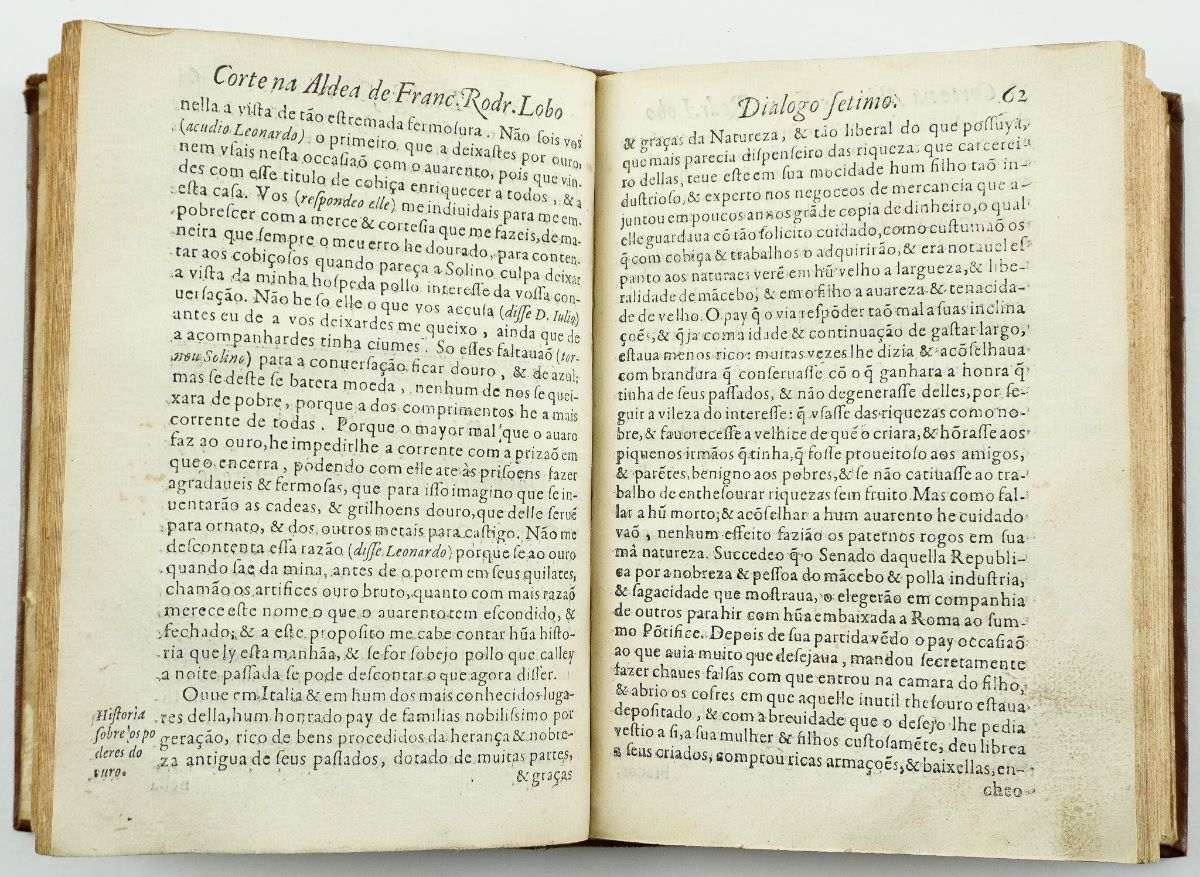 Corte na Aldea de Franc. Rodr. Lobo
nella a viſta de tão eſtremada fermoſura. Não ſois vos
(acudio Leonardo) o primeiro, que a deixaſtes por ouro,
nem vſais neſta occaſiaõ com o auarento, pois que vin-
des com eſſe titulo de cobiça enriquecer a todos, & a
eſta caſa. Vos (reſpondeo elle) me indiuidais para me em-
pobreſcer com a merce & corteſia que me fazeis, de ma-
neira que ſempre o meu erro he dourado, para conten-
tar aos cobiçoſos quando pareça a Solino culpa deixar
a viſta da minha hoſpeda pollo intereſſe da voſſa con-
uerſação. Não he ſo elle o que vos accuſa (diſſe D. Iulio)
antes eu de a vos deixardes me queixo, ainda que de
a acompanhardes tinha ciumes. So eſſes faltauaõ (tor-
nou Solino) para a conuerſação ficar douro, & de azul;
mas ſe deſte ſe batera moeda, nenhum de nos ſe quei-
xara de pobre, porque a dos comprimentos he a mais
corrente de todas. Porque o mayor mal que o auaro
faz ao ouro, he impedirlhe a corrente com a prizaõ em
que o encerra, podendo com elle ate às priſoens fazer
agradaueis & fermoſas, que para iſſo imagino que ſe in-
uentarão as cadeas, & grilhoens douro, que delle ſeruẽ
para ornato, & dos outros metais para caſtigo. Não me
deſcontenta eſſa razão (diſſe Leonardo) porque ſe ao ouro
quando ſae da mina, antes de o porem em ſeus quilates,
chamão os artifices ouro bruto, quanto com mais razaõ
merece eſte nome o que o auarento tem eſcondido, &
fechado; & a eſte propoſito me cabe contar hũa hiſto-
ria que ly eſta manhãa, & ſe for ſobejo pollo que calley
a noite paſſada ſe pode deſcontar o que agora diſſer.
Ouue em Italia & em hum dos mais conhecidos luga-
res della, hum honrado pay de familias nobiliſſimo por
geração, rico de bens procedidos da herança & nobre-
za antigua de ſeus paſſados, dotado de muitas partes,
& graças
Hiſtoria
ſobre os po
deres do
ouro.
Dialogo ſetimo. 62
& graças da Natureza, & tão liberal do que poſſuya,
que mais parecia diſpenſeiro das riquezas que carcerei-
ro dellas, teue eſte em ſua mocidade hum filho taõ in-
duſtrioſo, & experto nos negoceos de mercancia que a-
juntou em poucos annos grãde copia de dinheiro, o qual
elle guardaua cõ tão ſolicito cuidado, como cuſtumaõ os
q̃ com cobiça & trabalhos o adquirirão, & era notauel eſ-
panto aos naturaes verẽ em hũ velho a largueza, & libe-
ralidade de mãcebo, & em o filho a auareza & tenacida-
de de velho. O pay q̃ o via reſpõder taõ mal a ſuas inclina
çoẽs, & q̃ ja com a idade & continuação de gaſtar largo,
eſtaua menos rico: muitas vezes lhe dizia & acõſelhaua
com brandura q̃ conſeruaſſe cõ o q̃ ganhara a honra q̃
tinha de ſeus paſſados, & não degeneraſſe delles, por ſe-
guir a vileza do intereſſe: q̃ vſaſſe das riquezas como no-
bre, & fauoreceſſe a velhice de quẽ o criara, & hõraſſe aos
piquenos irmãos q̃ tinha, q̃ foſſe proueitoſo aos amigos,
& parẽtes, benigno aos pobres, & ſe não catiuaſſe ao tra-
balho de entheſourar riquezas ſem fruito. Mas como fal-
lar a hũ morto, & acõſelhar a hum auarento he cuidado
vaõ, nenhum effeito fazião os paternos rogos em ſua
má natureza. Succedeo q̃ o Senado daquella Republi-
ca por a nobreza & peſſoa do mãcebo & polla induſtria,
& ſagacidade que moſtraua, o elegerão em companhia
de outros para hir com hũa embaixada a Roma ao ſum-
mo Põtifice. Depois de ſua partida vẽdo o pay occaſiaõ
ao que auia muito que deſejaua, mandou ſecretamente
fazer chaues falſas com que entrou na camara do filho,
& abrio os cofres em que aquelle inutil theſouro eſtaua
depoſitado, & com a breuidade que o deſejo lhe pedia
veſtio a ſi, a sua mulher & filhos cuſtoſamẽte, deu librea
a ſeus criados, comprou ricas armaçoẽs, & baixellas, en-
cheo